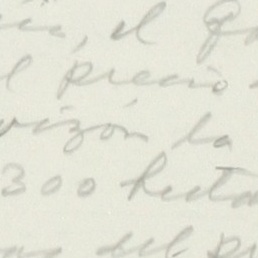 , el
el precio
vizón la
300 hecta
del pr